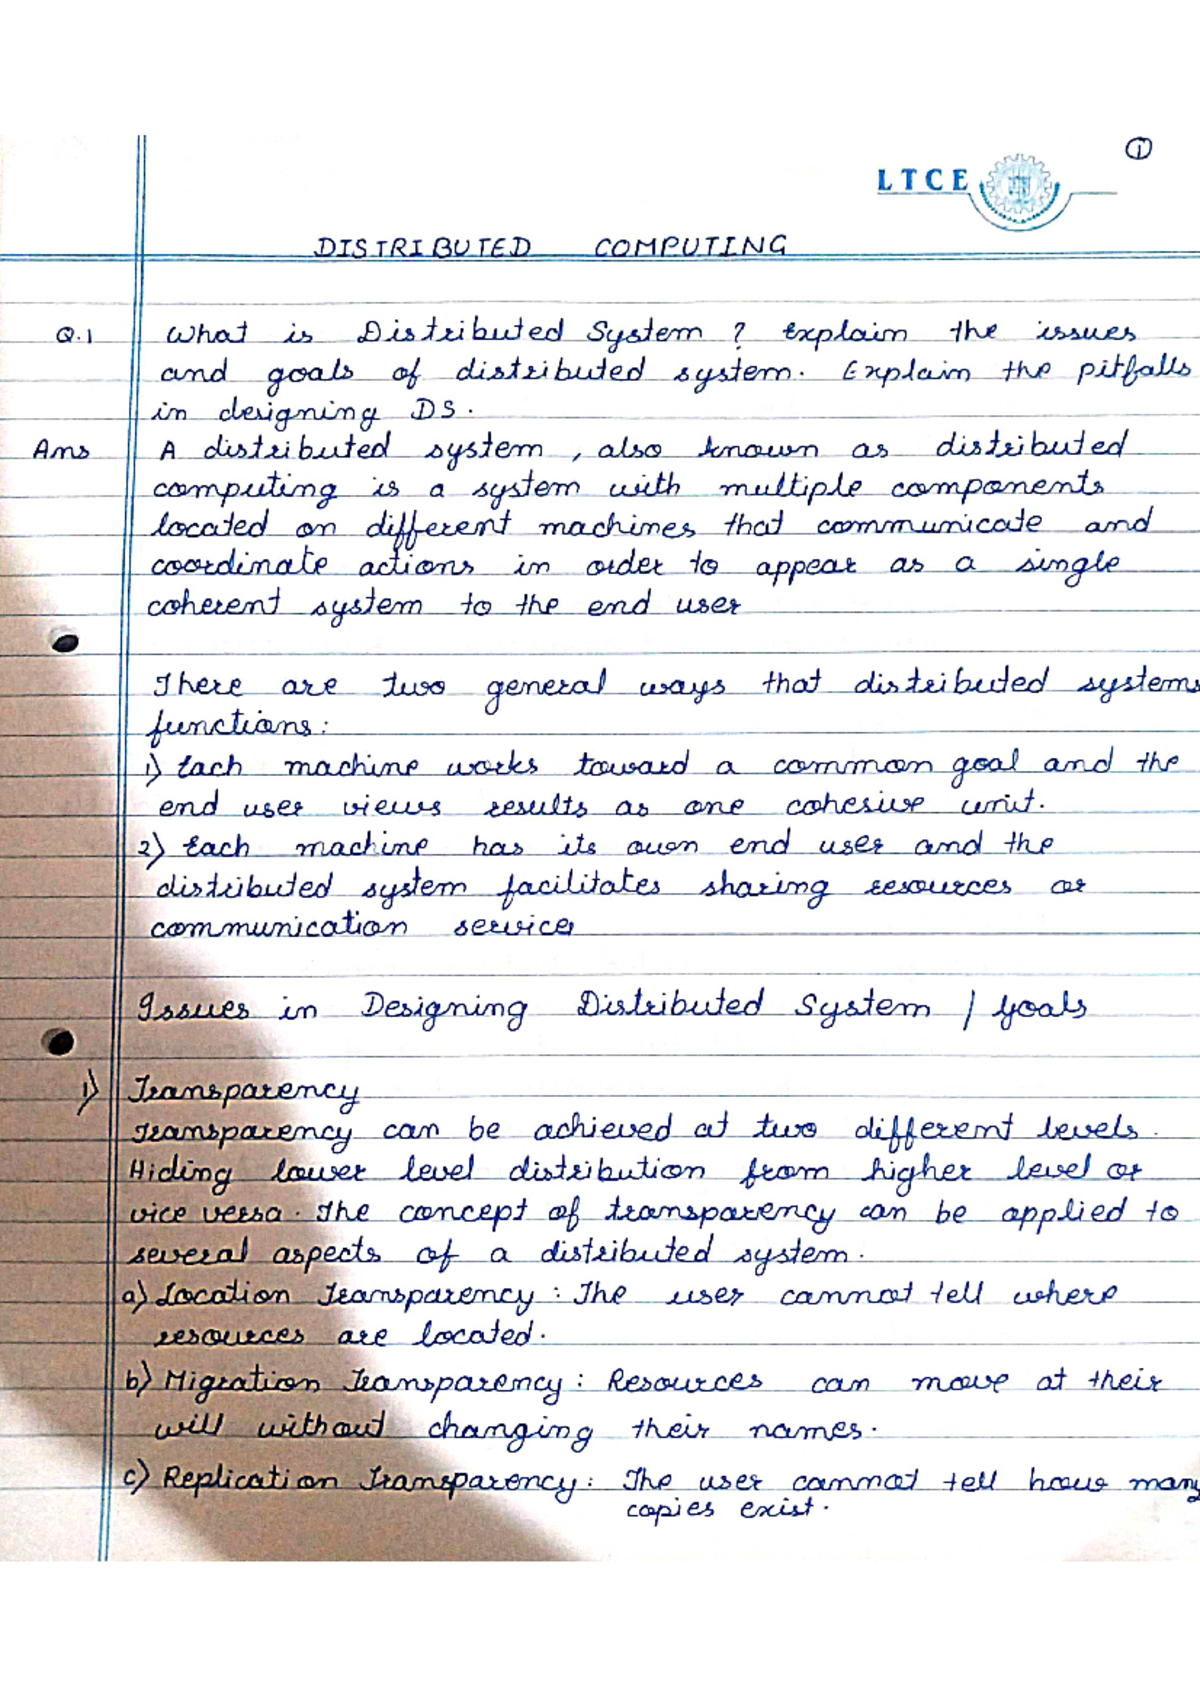 1
LTCE
DISTRIBUTED COMPUTING
Q.1 What is Distributed System ? Explain the issues
and goals of distributed system. Explain the pitfalls
in designing DS.
Ans A distributed system , also known as distributed
computing is a system with multiple components
located on different machines that communicate and
coordinate actions in order to appear as a single
coherent system to the end user
There are two general ways that distributed systems
functions:
1) Each machine works toward a common goal and the
end user views results as one cohesive unit.
2) Each machine has its own end user and the
distributed system facilitates sharing resources or
communication services
Issues in Designing Distributed System / Goals
1) Transparency
Transparency can be achieved at two different levels.
Hiding lower level distribution from higher level or
vice versa. The concept of transparency can be applied to
several aspects of a distributed system.
a) Location Transparency : The user cannot tell where
resources are located.
b) Migration Transparency : Resources can move at their
will without changing their names.
c) Replication Transparency : The user cannot tell how many
copies exist.